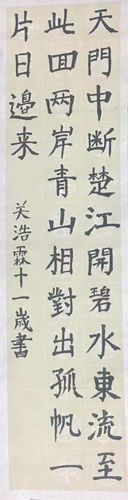 天門中断楚江開碧水東流至
此回两岸青山相對出孤帆一
片日邉来
关浩霖十一歲書